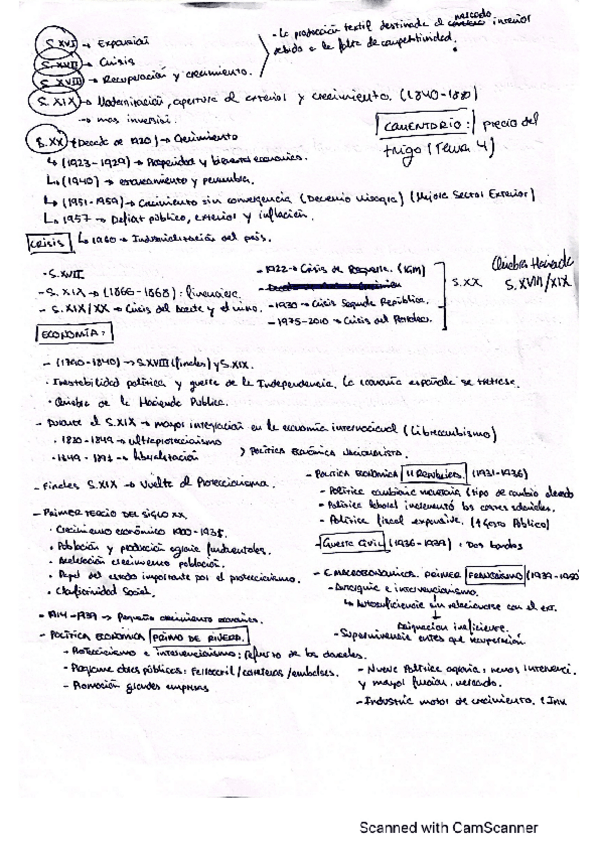 S.XVI → Expansión
S.XVII → Crisis
S.XVIII → Recuperación y crecimiento.
- La producción textil destinada al mercado interior
debido a la falta de competitividad.
S.XIX → Modernización, apertura al exterior y crecimiento. (1840-1880)
→ mas inversión.
COMENTARIO: precio del
trigo (Tema 4)
S.XX → (Decada de 1920) → Crecimiento
↳ (1923-1929) → Prosperidad y bienestar económico.
↳ (1940) → estancamiento y penumbra.
↳ (1951-1959) → Crecimiento sin convergencia (Decenio bisagra) (Mejora Sector Exterior)
↳ 1957 → Deficit público, exterior y inflación.
↳ 1960 → Industrialización del país.
CRISIS
- S.XVII
- S.XIX → (1866-1868): financiera.
- S.XIX/XX → Crisis del Aceite y el vino.
- 1922 → Crisis de Posguerra. (IGM)
- 1930 → Crisis Segunda República.
- 1975-2010 → Crisis del Petroleo.
S.XX
Quiebra Hacienda
S.XVIII/XIX
ECONOMÍA:
- (1790-1840) → S.XVIII (finales) y S.XIX.
· Inestabilidad política y guerra de la Independencia. La economía española se retrasa.
· Quiebra de la Hacienda Publica.
- Durante el S.XIX → mayor integración en la economía internacional (Librecambismo)
· 1820-1849 → ultraproteccionismo
· 1849-1891 → liberalización
> Política económica nacionalista.
- Finales S.XIX → Vuelta al Proteccionismo.
- PRIMER TERCIO DEL SIGLO XX
· Crecimiento económico 1900-1935.
· Población y producción agraria fundamentales.
· Aceleración crecimiento población.
· Papel del estado importante por el proteccionismo.
· Conflictividad Social.
- 1914-1939 → Pequeño crecimiento económico.
- POLÍTICA ECONOMICA PRIMO DE RIVERA.
- Proteccionismo e intervencionismo: refuerzo de los aranceles.
- Programa obras públicas: Ferrocarril/carreteras/embalses.
- Promoción grandes empresas
- POLITICA ECONOMICA II República. (1931-1936)
- Política cambiaria monetaria (tipo de cambio elevado
- Política laboral incrementó los costes salariales.
- Política fiscal expansiva. (↑Gasto Público)
- Guerra Civil (1936-1939). Dos bandos
- C MACROECONOMICOS. PRIMER FRANQUISMO (1939-1950
- Autarquía e intervencionismo.
↳ Autosuficiencia sin relacionarse con el ext.
Asignación ineficiente.
- Supervivencia antes que recuperación
- Nueva Política agraria: menos intervenci.
y mayor función. mercado.
- Industria motor de crecimiento.
Scanned with CamScanner